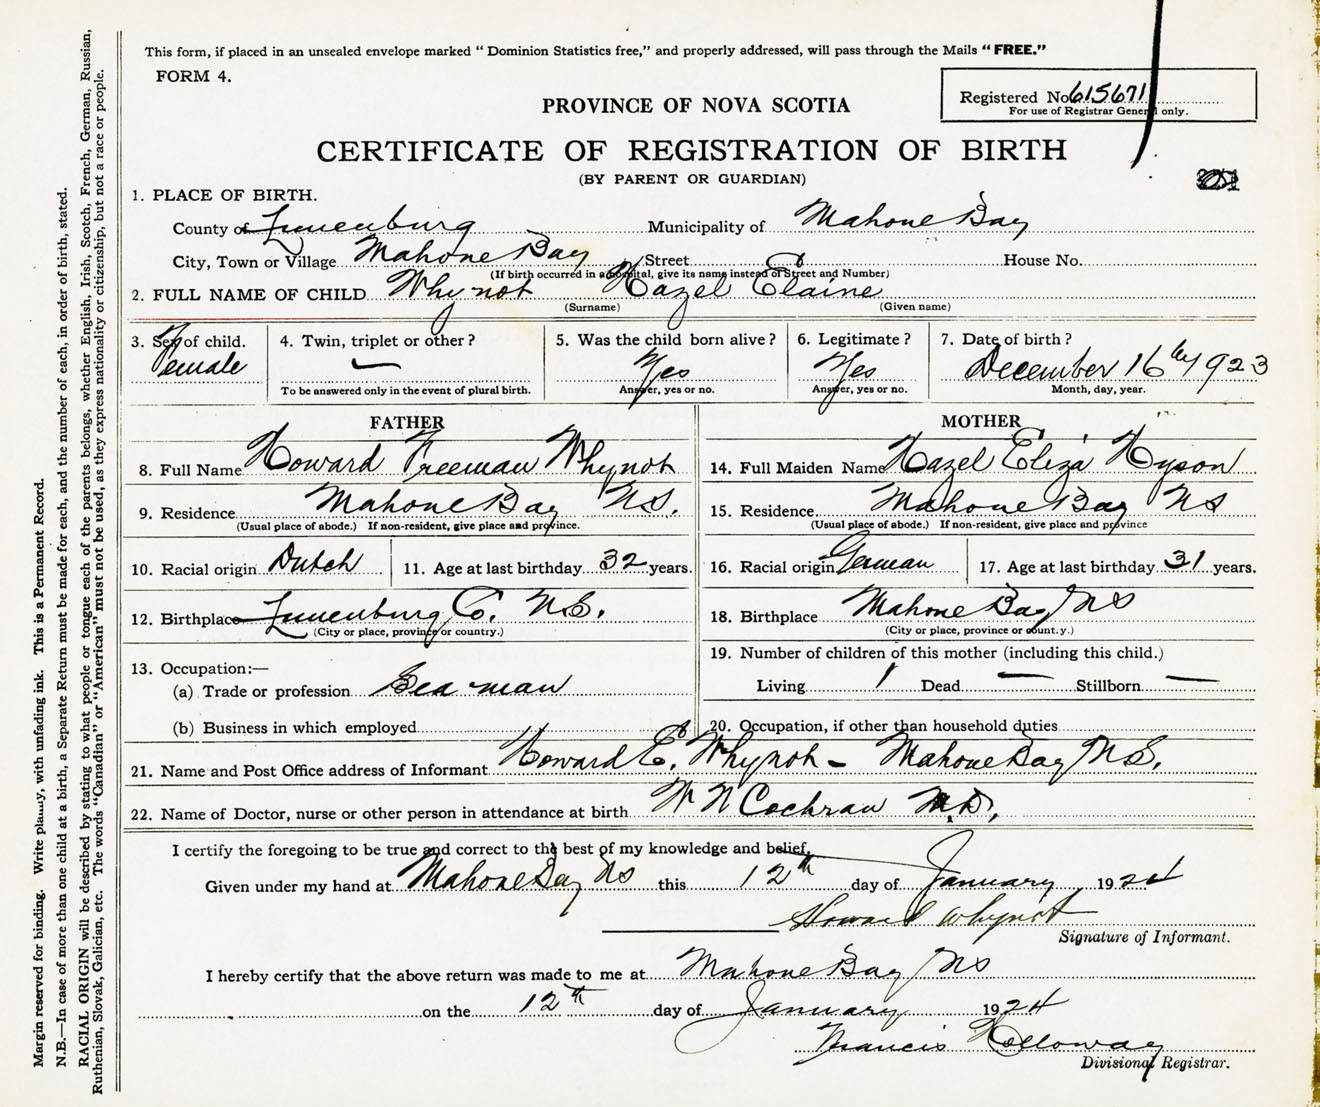 This form, if placed in an unsealed envelope marked " Dominion Statistics free," and properly addressed, will pass through the Mails " FREE."
FORM 4.
Registered No. 615671
For use of Registrar General only.
PROVINCE OF NOVA SCOTIA
CERTIFICATE OF REGISTRATION OF BIRTH
(BY PARENT OR GUARDIAN)
1. PLACE OF BIRTH.
County of Lunenburg Municipality of Mahone Bay
City, Town or Village Mahone Bay Street House No.
(If birth occurred in a hospital, give its name instead of Street and Number)
2. FULL NAME OF CHILD Whynot Hazel Elaine
(Surname) (Given name)
3. Sex of child. Female
4. Twin, triplet or other? —
To be answered only in the event of plural birth.
5. Was the child born alive? Yes
Answer, yes or no.
6. Legitimate? Yes
Answer, yes or no.
7. Date of birth? December 16th 1923
Month, day, year.
FATHER
8. Full Name Howard Freeman Whynot
9. Residence Mahone Bay N.S.
(Usual place of abode.) If non-resident, give place and province.
10. Racial origin Dutch 11. Age at last birthday 32 years.
12. Birthplace Lunenburg Co. N.S.
(City or place, province or country.)
13. Occupation:—
(a) Trade or profession Seaman
(b) Business in which employed
MOTHER
14. Full Maiden Name Hazel Eliza Hyson
15. Residence Mahone Bay NS
(Usual place of abode.) If non-resident, give place and province
16. Racial origin German 17. Age at last birthday 31 years.
18. Birthplace Mahone Bay NS
(City or place, province or count.y.)
19. Number of children of this mother (including this child.)
Living 1 Dead — Stillborn —
20. Occupation, if other than household duties
21. Name and Post Office address of Informant Howard E. Whynot - Mahone Bay N.S.
22. Name of Doctor, nurse or other person in attendance at birth W N Cochran M.D.,
I certify the foregoing to be true and correct to the best of my knowledge and belief.
Given under my hand at Mahone Bay NS this 12th day of January 1924
Howard Whynot
Signature of Informant.
I hereby certify that the above return was made to me at Mahone Bay NS
on the 12th day of January 1924
Francis Holloway
Divisional Registrar.
Margin reserved for binding. Write plainly, with unfading ink. This is a Permanent Record.
N.B.—In case of more than one child at a birth, a Separate Return must be made for each, and the number of each, in order of birth, stated.
RACIAL ORIGIN will be described by stating to what people or tongue each of the parents belongs, whether English, Irish, Scotch, French, German, Russian,
Ruthenian, Slovak, Galician, etc. The words "Canadian" or "American" must not be used, as they express nationality or citizenship, but not a race or people.